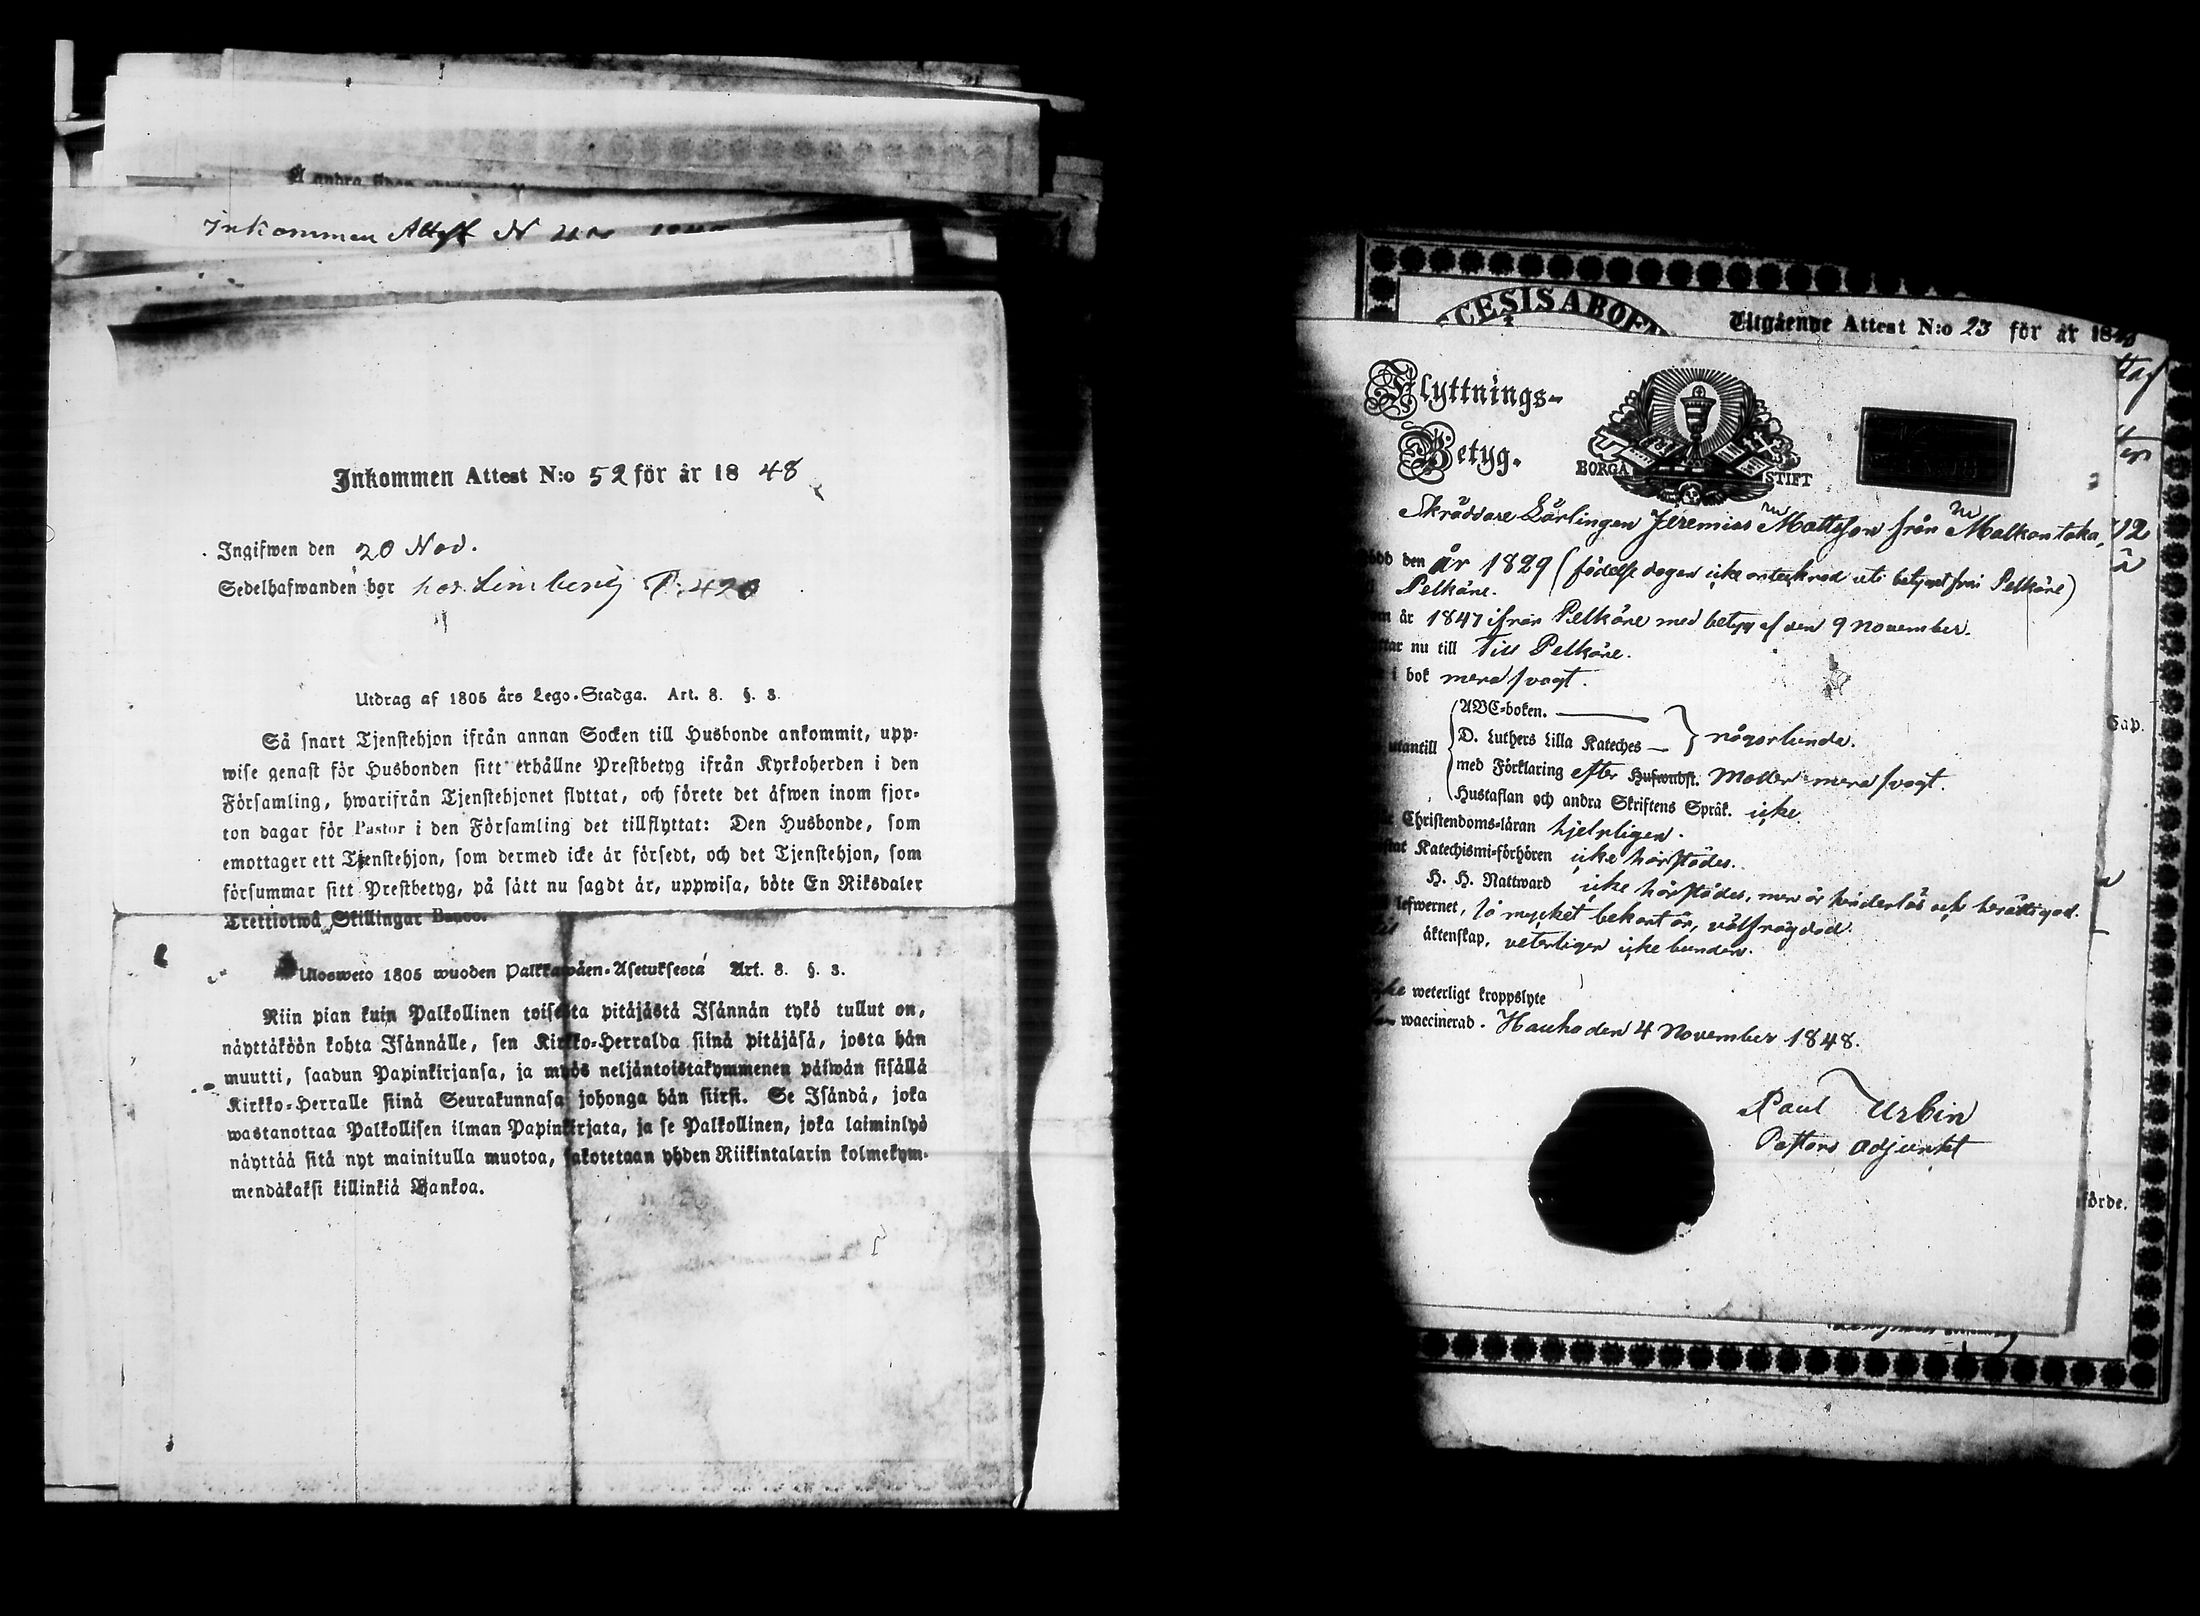 Å andra sidan
Inkommen Attest N
Inkommen Attest N:o 52 för år 18 48
Ingifwen den 20 Nov.
Sedelhafwanden bor hos Limberig P. 420
Utdrag af 1805 års Lego-Stadga. Art. 8. §. 3.
Så snart Tjenstehjon ifrån annan Socken till Husbonde ankommit, upp-
wise genast för Husbonden sitt erhållne Prestbetyg ifrån Kyrkoherden i den
Församling, hwarifrån Tjenstehjonet flyttat, och förete det äfwen inom fjor-
ton dagar för Pastor i den Församling det tillflyttat: Den Husbonde, som
emottager ett Tjenstehjon, som dermed icke är försedt, och det Tjenstehjon, som
försummar sitt Prestbetyg, på sätt nu sagdt är, uppwisa, böte En Riksdaler
Trettiotwå Skillingar Banco.
Ulosweto 1805 wuoden Palkkawäen-Asetuksesta Art. 8. §. 3.
Niin pian kuin Palkollinen toisesta pitäjästä Isännän tykö tullut on,
näyttäköön kohta Isännälle, sen Kirkko-Herralda siinä pitäjäsä, josta hän
muutti, saadun Papinkirjansa, ja myös neljäntoistakymmenen päiwän sisällä
Kirkko-Herralle siinä Seurakunnasa johonga hän siirsi. Se Isändä, joka
wastanottaa Palkollisen ilman Papinkirjata, ja se Palkollinen, joka laiminlyö
näyttää sitä nyt mainitulla muotoa, sakotetaan yhden Riikintalarin kolmekym-
mendäkaksi killinkiä Bankoa.
CESIS ABOEN
Utgående Attest N:o 23 för år 18
Flyttnings-
Betyg.
BORGÅ STIFT
Skräddare Lärlingen Jeremias Mattsson från Malkantaka,
född den år 1829 (födelse dagen icke antecknad uti betyget från Pelkäne)
Pelkäne.
om år 1847 ifrån Pelkäne med betyg af den 9 November.
ttar nu till Till Pelkäne.
i bok mera swagt.
utantill
ABC-boken.
D. Luthers Lilla Kateches någorlunda.
med Förklaring efter Hufwudst. Moller mera swagt.
Hustaflan och andra Skriftens Språk. icke
Christendoms-läran hjelpligen.
Katechismi-förhören icke härstädes.
H. H. Nattward icke härstädes, men är hinderlös och berättigad.
lefwernet, så mycket bekant är, välfrägdad.
äktenskap, veterligen icke bunden.
weterligt kroppslyte
waccinerad. Hauho den 4 November 1848.
Paul Urbin
Pastors Adjunkt
Cap.
förde.